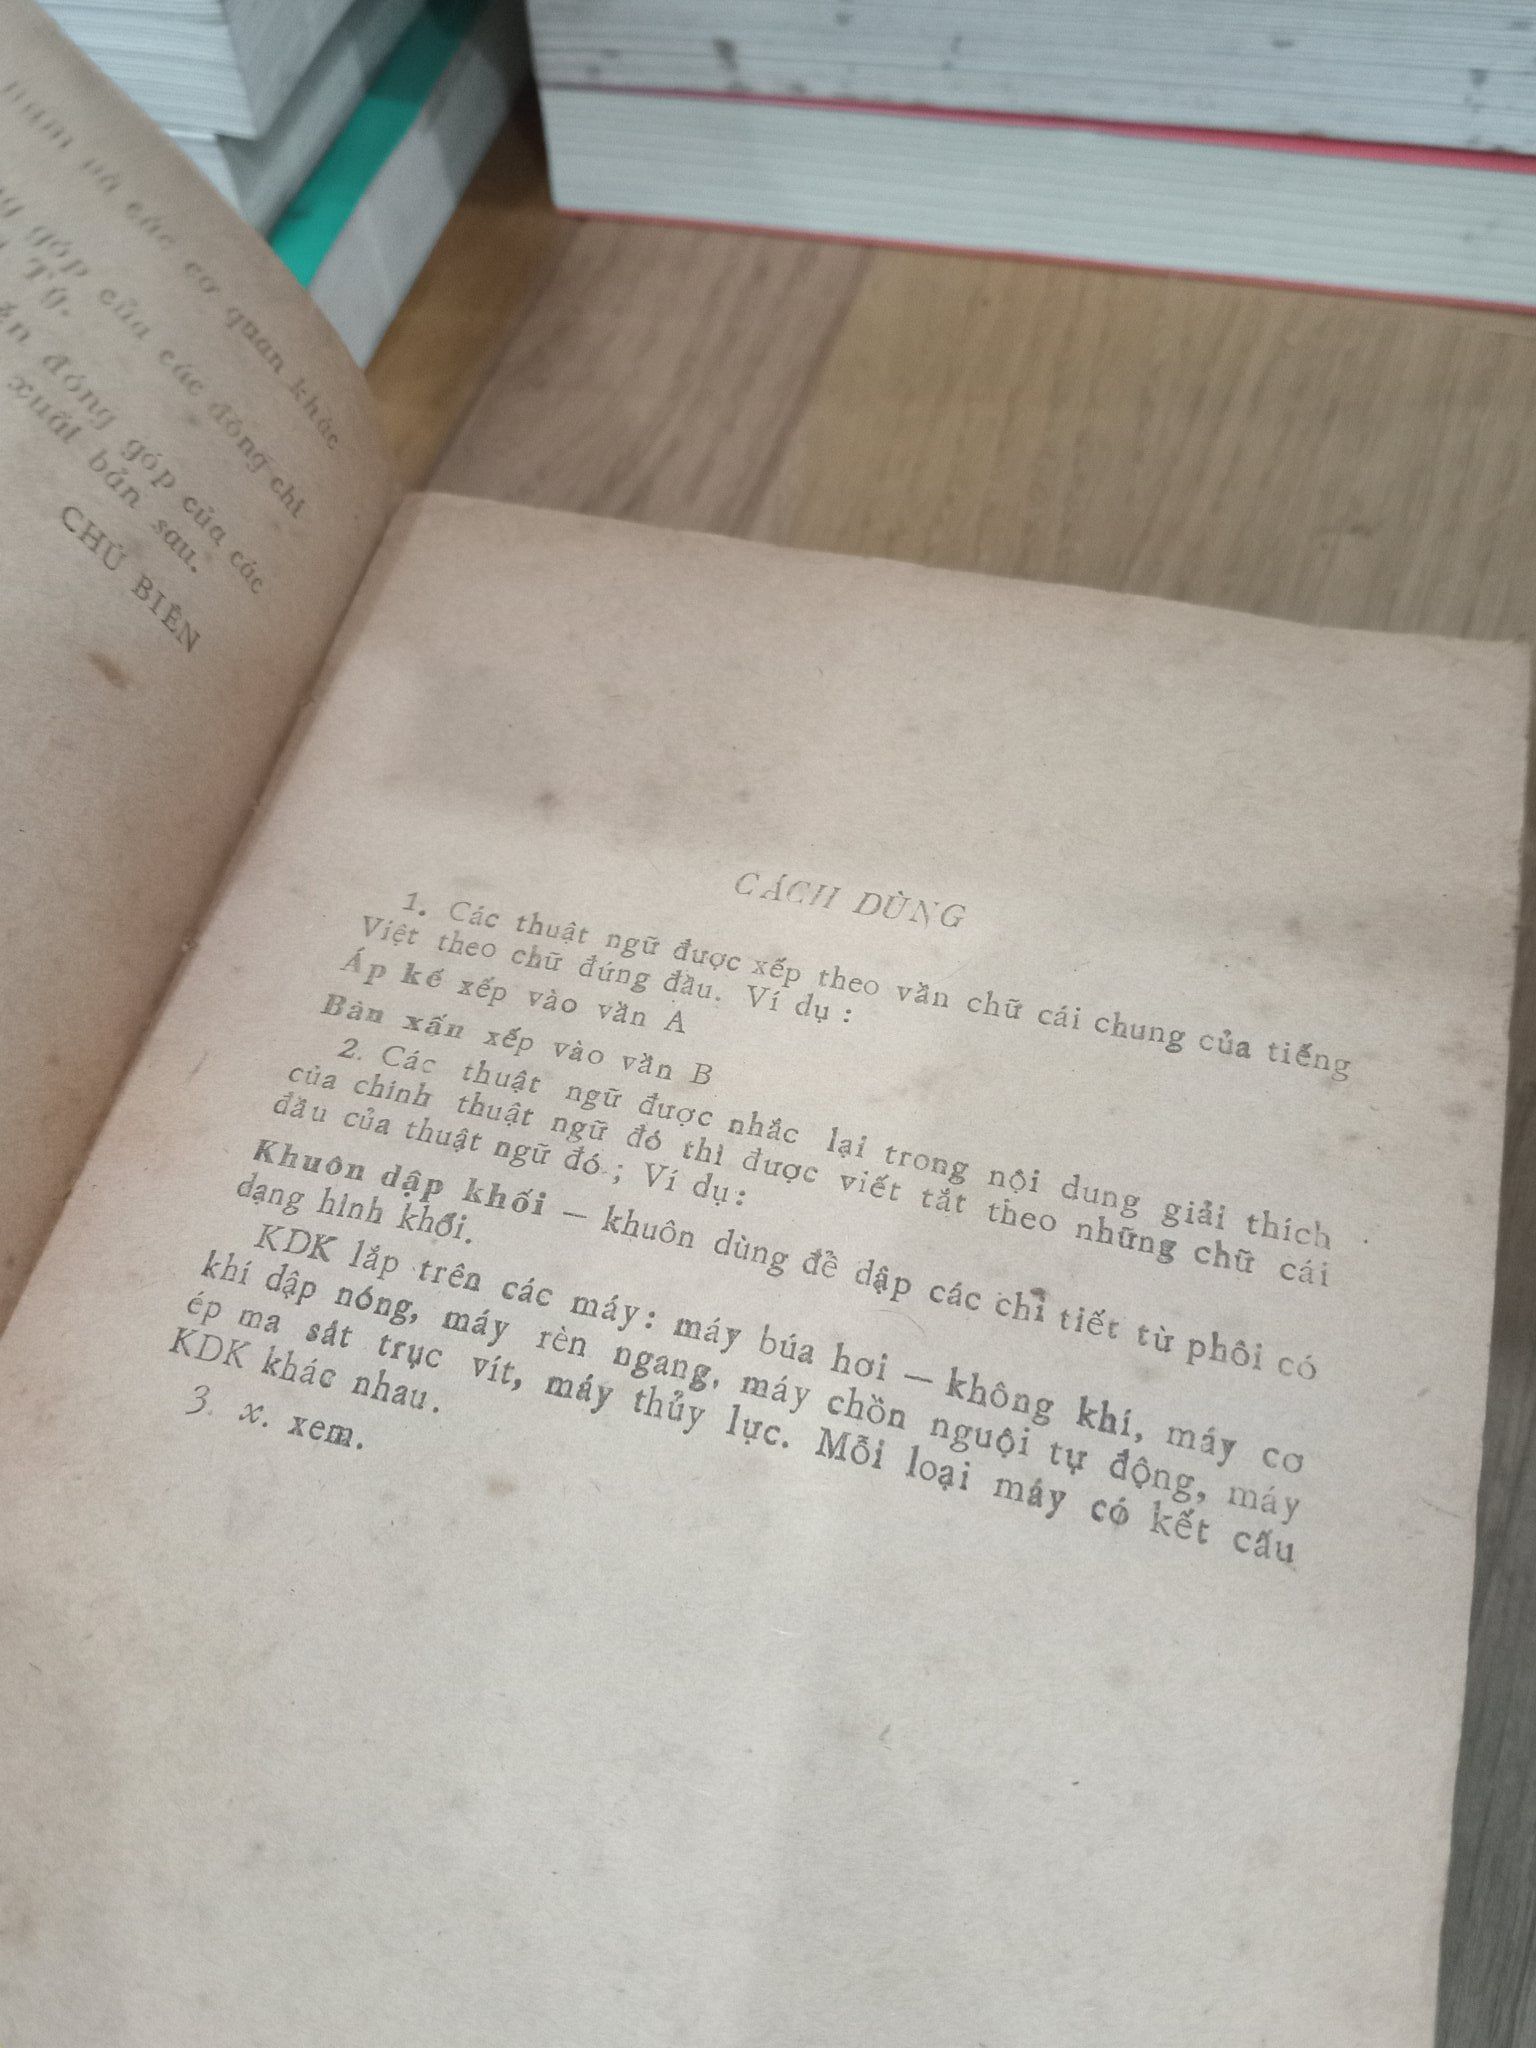 năm và các cơ quan khác
góp của các đồng chí
Tự.
đóng góp của các
xuất bản sau.
CHỦ BIÊN
CÁCH DÙNG
1. Các thuật ngữ được xếp theo vần chữ cái chung của tiếng
Việt theo chữ đứng đầu. Ví dụ :
Áp kế xếp vào vần A
Bàn xấn xếp vào vần B
2. Các thuật ngữ được nhắc lại trong nội dung giải thích
của chính thuật ngữ đó thì được viết tắt theo những chữ cái
đầu của thuật ngữ đó ; Ví dụ :
Khuôn dập khối — khuôn dùng để dập các chi tiết từ phôi có
dạng hình khối.
KDK lắp trên các máy : máy búa hơi — không khí, máy cơ
khí dập nóng, máy rèn ngang, máy chồn nguội tự động, máy
ép ma sát trục vít, máy thủy lực. Mỗi loại máy có kết cấu
KDK khác nhau.
3. x. xem.